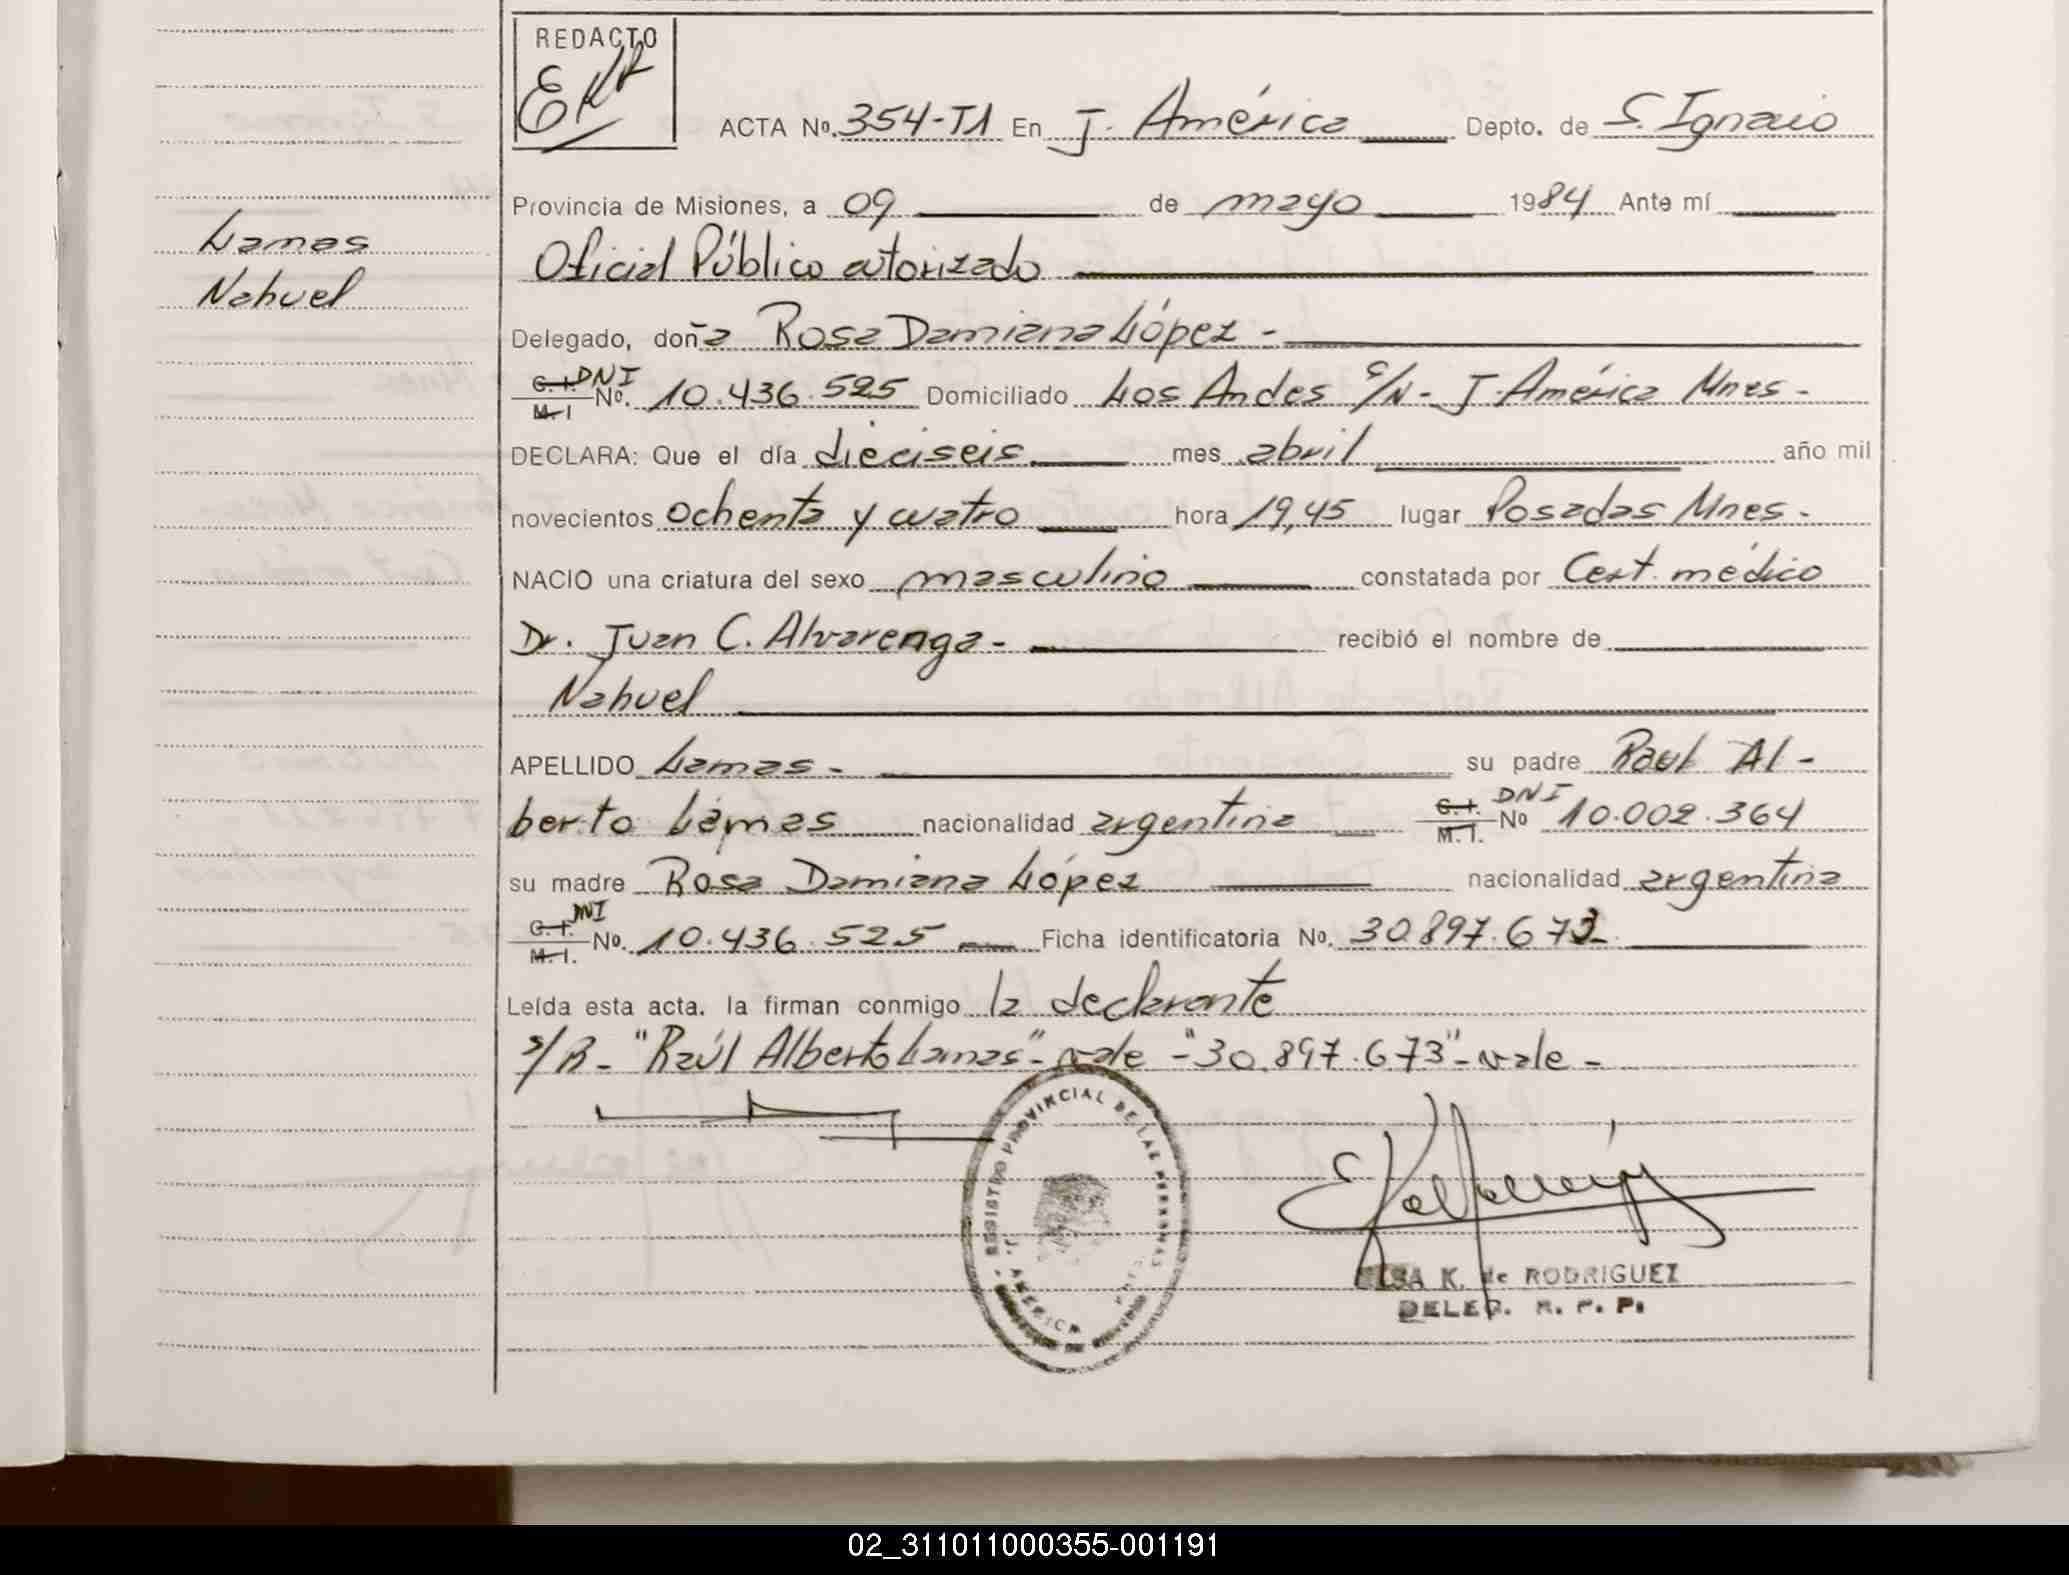 REDACTO
ACTA No. 354-T1 En J. América Depto. de S. Ignacio
Provincia de Misiones, a 09 de mayo 1984 Ante mí
Lamas
Nahuel
Oficial Público autorizado
Delegado, doña Rosa Damiana López -
C. I. M. I DNI No. 10.436.525 Domiciliado Los Andes S/N - J. América Mnes -
DECLARA: Que el día dieciseis mes abril año mil
novecientos ochenta y cuatro hora 19,45 lugar Posadas Mnes -
NACIO una criatura del sexo masculino constatada por Cert. médico
Dr. Juan C. Alvarenga - recibió el nombre de
Nahuel
APELLIDO Lamas - su padre Raul Al -
berto Lamas nacionalidad argentina C. I. M. I. DNI No 10.002.364
su madre Rosa Damiana López nacionalidad argentina
C. I. M. I. DNI No. 10.436.525 Ficha identificatoria No. 30.897.673
Leída esta acta, la firman conmigo la declarante
s/R - "Raúl Alberto Lamas" - vale - "30.897.673" - vale -
REGISTRO PROVINCIAL DE LAS PERSONAS
J. AMERICA
ELSA K. de RODRIGUEZ
DELEG. R. P. P.
02_311011000355-001191